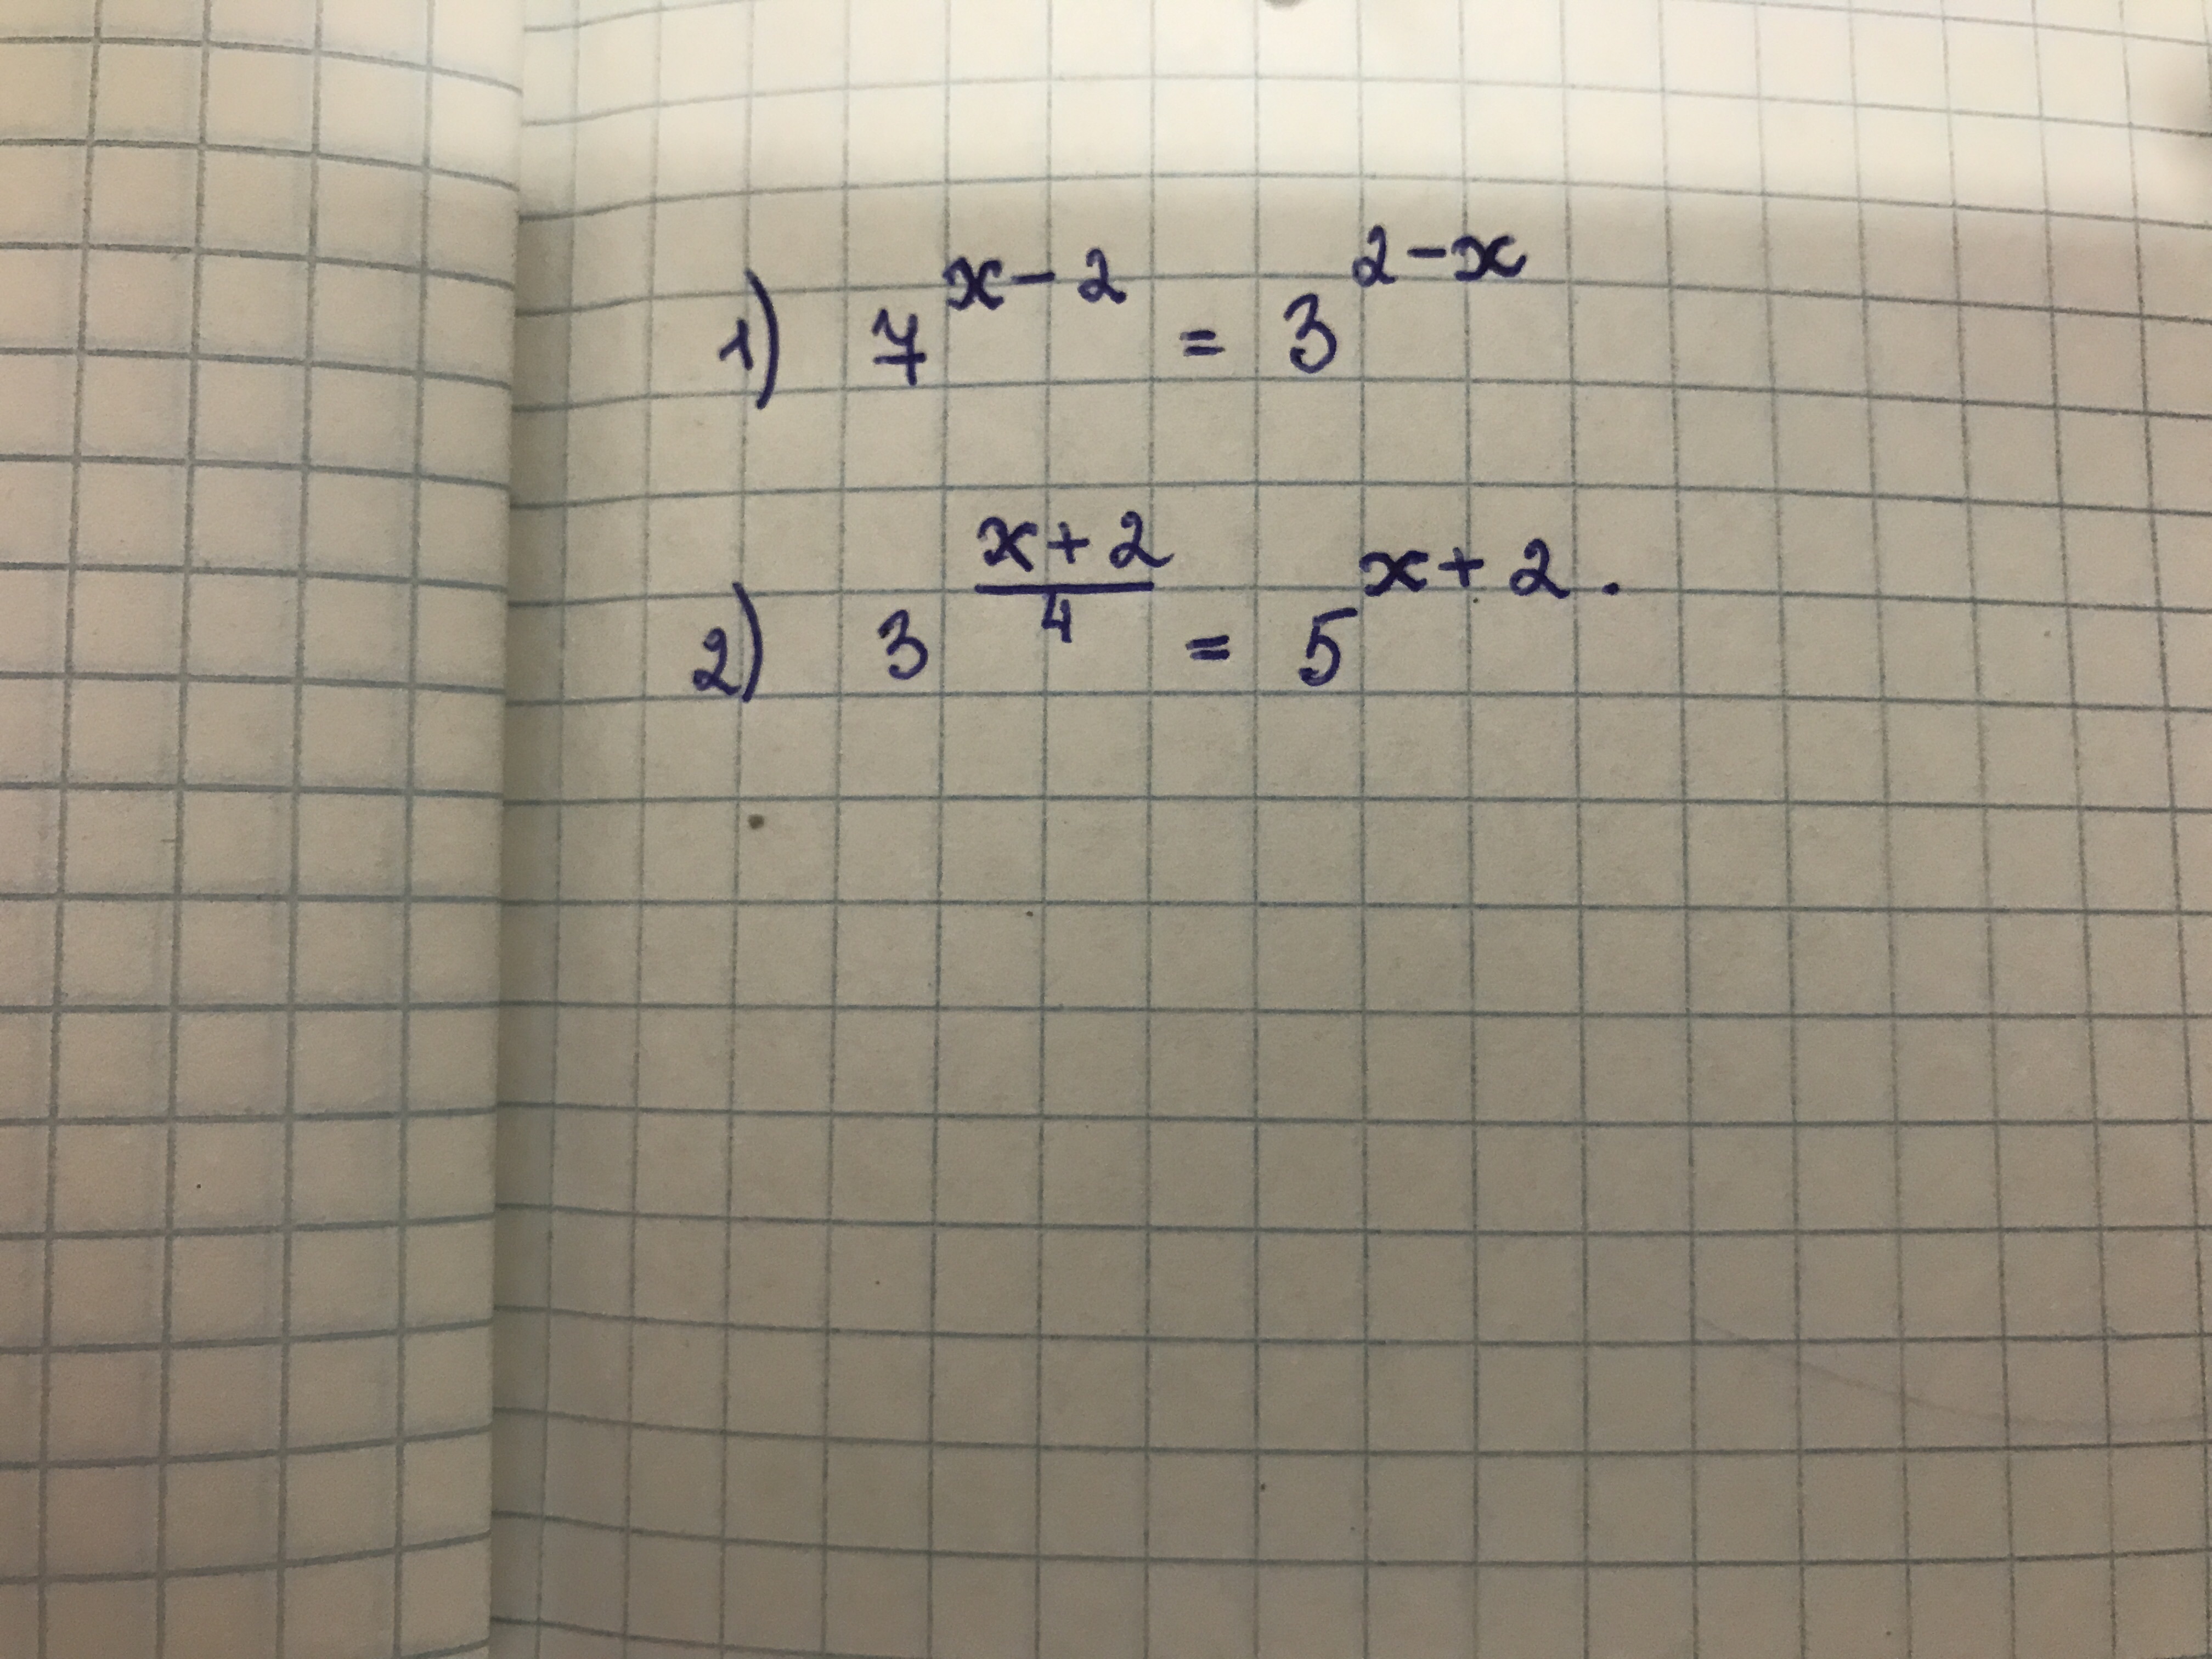 1) 7^{x-2} = 3^{2-x}
2) 3^{\frac{x+2}{4}} = 5^{x+2}.